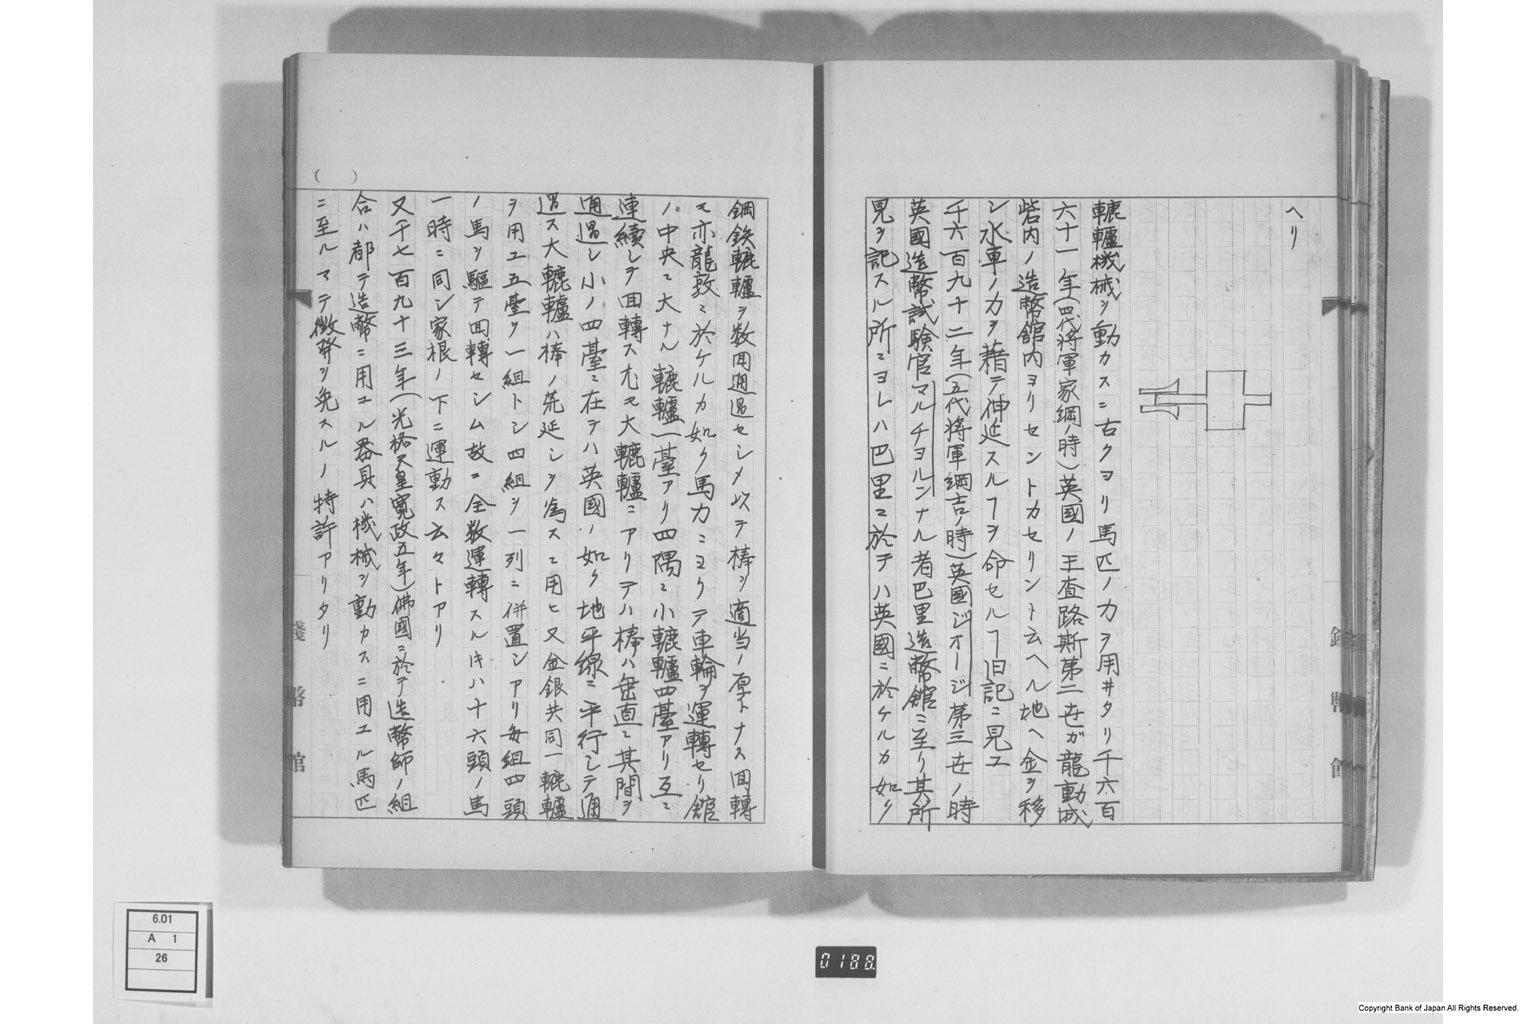 ヘリ
轆轤機械ヲ動カスニ古クヨリ馬匹ノ力ヲ用ヰタリ千六百
六十一年(四代将軍家綱ノ時)英國ノ王査路斯第二世ガ龍動城
砦内ノ造幣館内ヨリセントカセリント云ヘル地ヘ金ヲ移
シ水車ノ力ヲ藉テ伸延スルヿヲ命セルヿ旧記ニ見エ
千六百九十二年(五代将軍綱吉ノ時)英國ジオージ第三世ノ時
英國造幣試験官マルチヨルンナル者巴里造幣館ニ至リ其所
見ヲ記スル所ニヨレハ巴里ニ於テハ英國ニ於ケルカ如ク
鋼鉄轆轤ヲ数回通過セシメ以テ棒ヲ適当ノ厚トナス回轉
モ亦龍敦ニ於ケルカ如ク馬力ニヨリテ車輪ヲ運轉セリ館
ノ中央ニ大ナル轆轤一臺アリ四隅ニ小轆轤四臺アリ互ニ
連續シテ回轉ス尤モ大轆轤ニアリテハ棒ハ垂直ニ其間ヲ
通過シ小ノ四臺ニ在テハ英國ノ如ク地平線ニ平行シテ通
過ス大轆轤ハ棒ノ荒延シヲ為スニ用ヒ又金銀共同一轆轤
ヲ用ユ五臺ヲ一組トシ四組ヲ一列ニ併置シアリ毎組四頭
ノ馬ヲ驅テ回轉セシム故ニ全数運轉スルキハ十六頭ノ馬
一時ニ同シ家根ノ下ニ運動ス云々トアリ
又千七百九十三年(光格天皇寛政五年)佛國ニ於テ造幣師ノ組
合ハ都テ造幣ニ用ユル器具ハ機械ヲ動カスニ用エル馬匹
ニ至ルマテ徴発ヲ免スルノ特許アリタリ
( )
幣館
6.01
A 1
26
0188.
Copyright Bank of Japan All Rights Reserved.